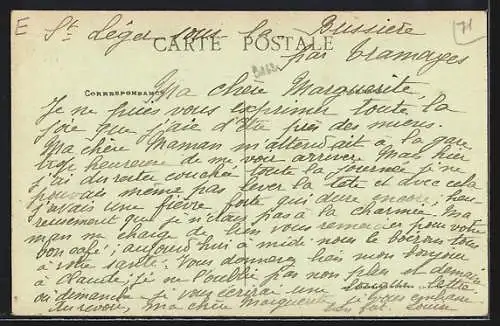 E St Léger sous la Bussière 71
CARTE POSTALE
par Tramayes
CORRESPONDANCE
Ma chère Marguerite
Je ne puis vous exprimer toute la
joie que j'aie d'être près des miens.
Ma chère Maman m'attendait à la gare
trop heureuse de me voir arriver. Mais hier
j'ai du rester couchée toute la journée je ne
pouvais même pas lever la tête et avec cela
j'avais une fièvre forte qui dure encore; heu-
reusement que je n'étais pas à la charmée. Ma
man me charge de bien vous remercier pour votre
bon café; aujourd'hui à midi nous le boirons tous
à votre santé. Vous donnerez bien mon bonjour
à Claude, je ne l'oublie pas non plus et demain
ou dimanche je vous écrirai une lettre
Au revoir, ma chère Marguerite je vous embrasse
bien fort. Louise